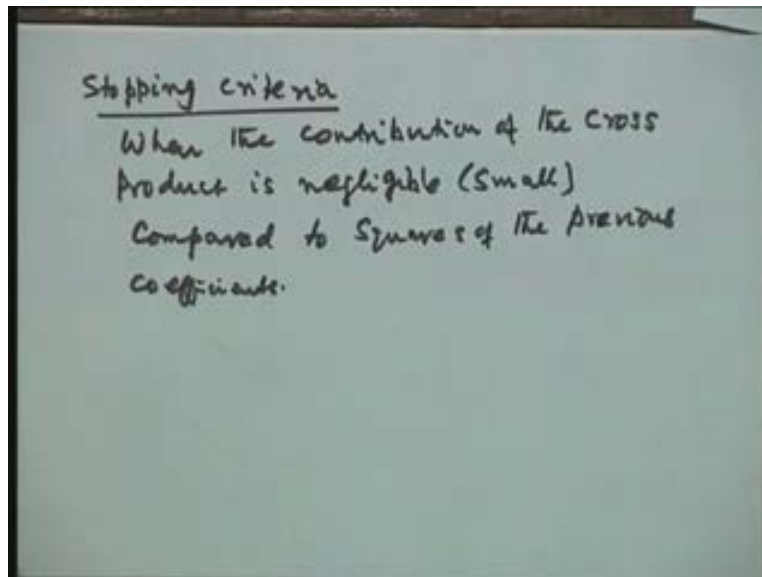 Stopping criteria
When the contribution of the cross
product is negligible (small)
Compared to Squares of the previous
coefficients.